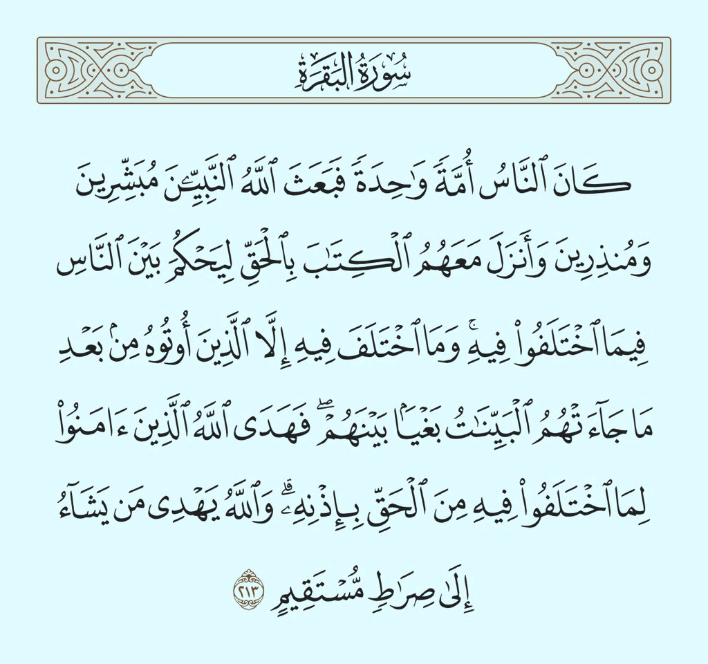 سُورَةُ البَقَرَةِ
كَانَ ٱلنَّاسُ أُمَّةً وَٰحِدَةً فَبَعَثَ ٱللَّهُ ٱلنَّبِيِّـۧنَ مُبَشِّرِينَ
وَمُنذِرِينَ وَأَنزَلَ مَعَهُمُ ٱلْكِتَٰبَ بِٱلْحَقِّ لِيَحْكُمَ بَيْنَ ٱلنَّاسِ
فِيمَا ٱخْتَلَفُوا۟ فِيهِۚ وَمَا ٱخْتَلَفَ فِيهِ إِلَّا ٱلَّذِينَ أُوتُوهُ مِنۢ بَعْدِ
مَا جَآءَتْهُمُ ٱلْبَيِّنَٰتُ بَغْيَۢا بَيْنَهُمْۖ فَهَدَى ٱللَّهُ ٱلَّذِينَ ءَامَنُوا۟
لِمَا ٱخْتَلَفُوا۟ فِيهِ مِنَ ٱلْحَقِّ بِإِذْنِهِۦۗ وَٱللَّهُ يَهْدِى مَن يَشَآءُ
إِلَىٰ صِرَٰطٍ مُّسْتَقِيمٍ ٢١٣